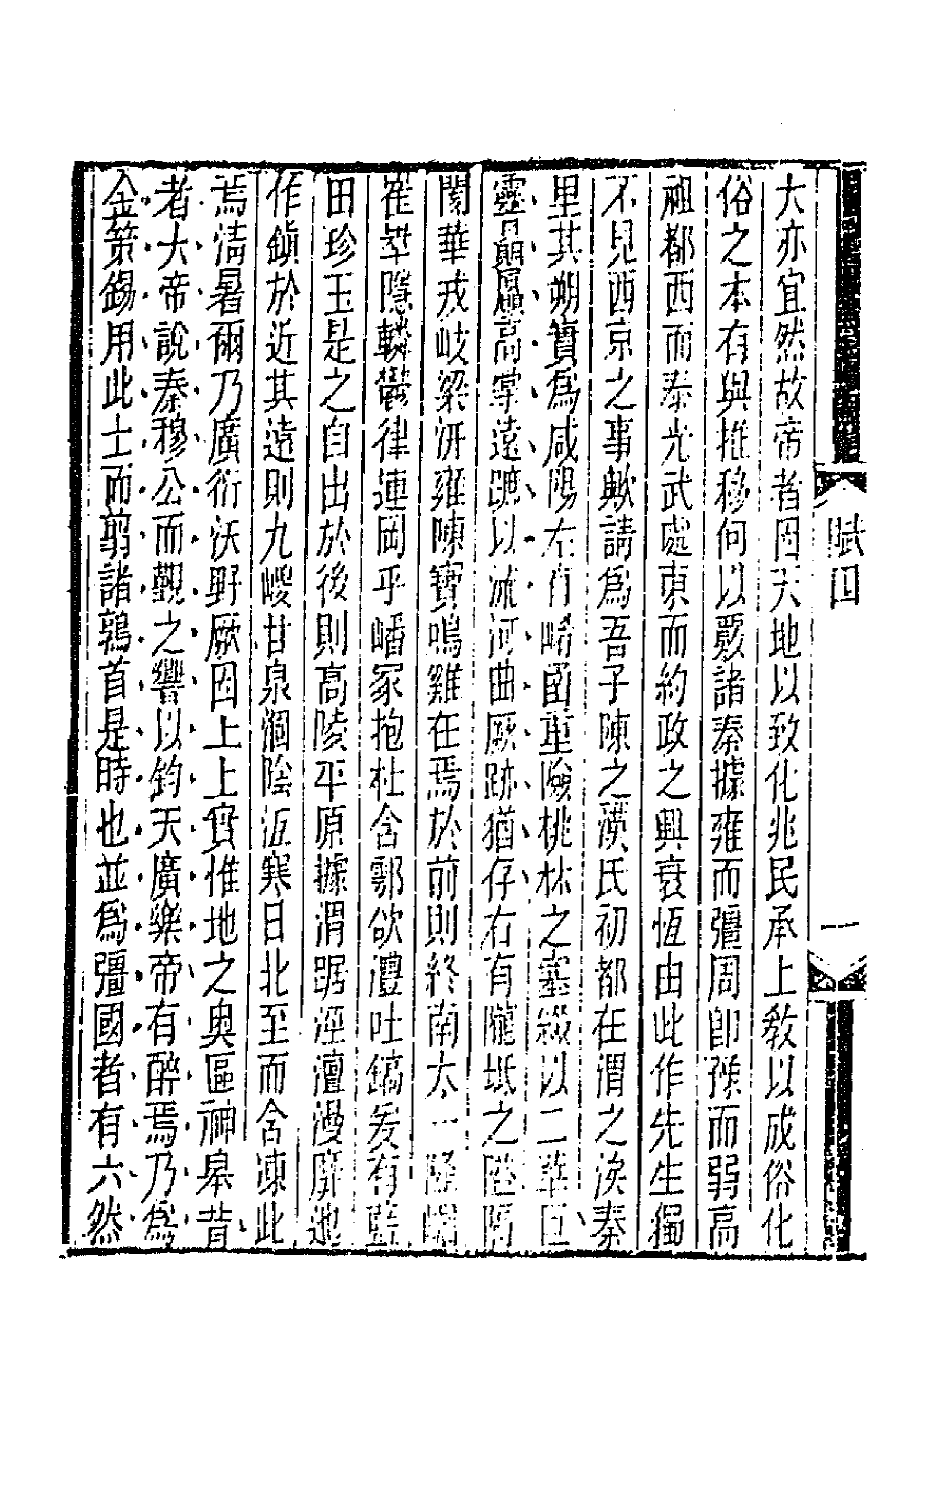 大亦宜然故帝者因天地以致化兆民承上敎以成俗化
俗之本有與推移何以覈諸秦據雍而彊周卽豫而弱高
祖都西而泰光武處東而約政之興衰恆由此作先生獨
不見西京之事歟請爲吾子陳之漢氏初都在渭之涘秦
里其朔實爲咸陽左有崤函重險桃林之塞綴以二華巨
靈贔屭高掌遠蹠以流河曲厥跡猶存右有隴坻之隘隔
閡華戎岐梁汧雍陳寶鳴雞在焉於前則終南太一隆崛
崔崒隱轔鬱律連岡乎嶓冢抱杜含鄠欱灃吐鎬爰有藍
田珍玉是之自出於後則高陵平原據渭踞涇澶漫靡迤
作鎭於近其遠則九嵕甘泉涸陰沍寒日北至而含凍此
焉淸暑爾乃廣衍沃野厥田上上實惟地之奧區神皋昔
者大帝說秦穆公而覲之饗以鈞天廣樂帝有醉焉乃爲
金策錫用此土而翦諸鶉首是時也並爲彊國者有六然
賦四
一